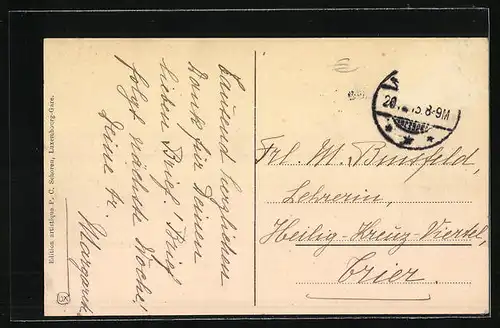 Tausend herzlichen
Dank für Deinen
lieben Brief! Brief
folgt nächste Woche!
Deine tr.
Margareth.
Edition artistique P. C. Schoren, Luxembourg-Gare.
20. 8-9N
Frl. M. Binsfeld,
Lehrerin,
Heilig-Kreuz-Viertel,
Trier.